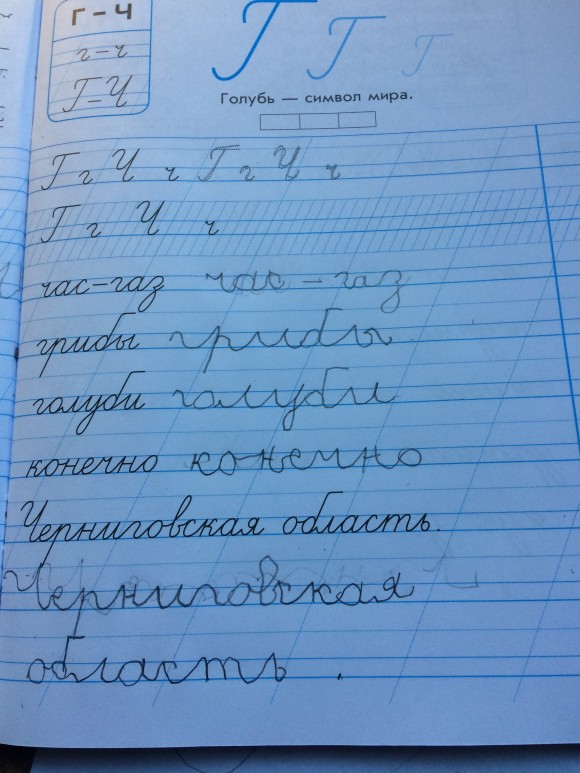 Г – Ч
г – ч
Г – Ч
Г Г Г
Голубь — символ мира.
Г г Ч ч Г г Ч ч
Г г Ч ч
час – газ час – газ
грибы грибы
голуби голуби
конечно конечно
Черниговская область.
Черниговская
область .